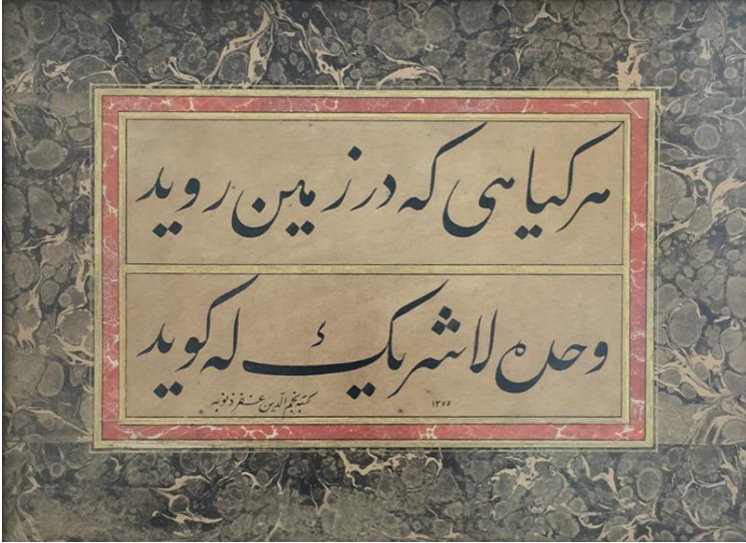 هر کیاهی که در زمین روید
وحده لا شریک له کوید
کتبه نجم الدین غفر ذنوبه
۱۳۷۵